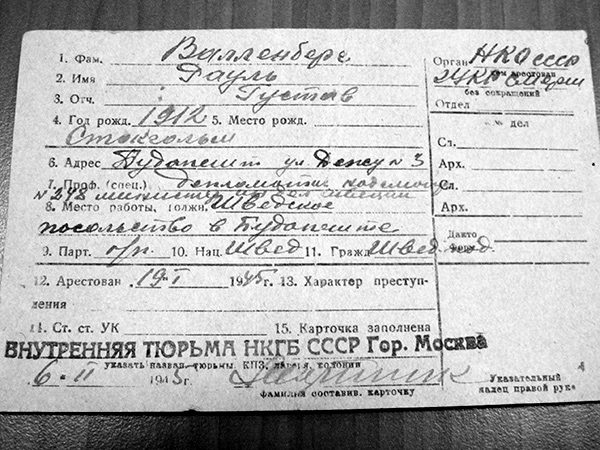 1. Фам. Валленберг
2. Имя Рауль
3. Отч. : Густав
4. Год рожд. 1912 5. Место рожд.
Стокгольм
6. Адрес Будапешт ул Дежу № 3
7. Проф. (спец.) дипломатич.
8. Место работы, должн. Шведское
посольство в Будапеште
9. Парт. б/п 10. Нац. Швед 11. Гражд. Швед.
12. Арестован 19-I 1945 г. 13. Характер преступ-
ления
14. Ст. ст. УК 15. Карточка заполнена
ВНУТРЕННЯЯ ТЮРЬМА НКГБ СССР Гор. Москва
указать назван. тюрьмы, КПЗ, лагеря, колонии
6-II 1945 г.
фамилия составив. карточку
Орган НКО СССР
кем арестован
УКР Смерш
без сокращений
Отдел
№ дел
Сл.
Арх.
Сл.
Арх.
Дакто
Указательный
палец правой руки